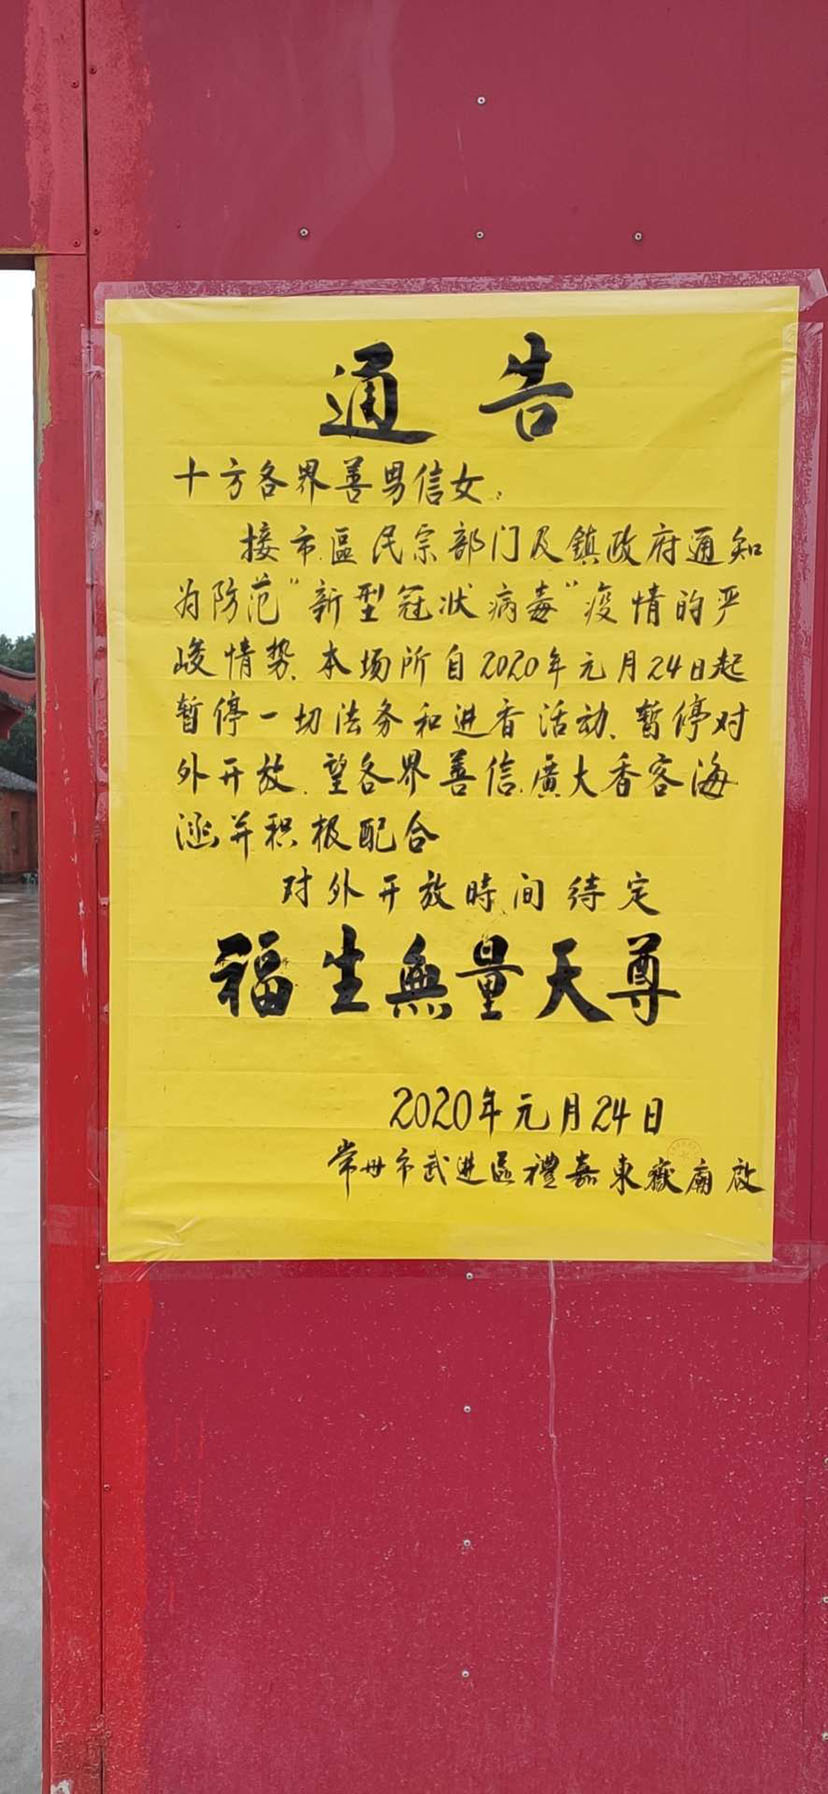 通告
十方各界善男信女：
接市.區民宗部门及鎮政府通知
为防范"新型冠状病毒"疫情的严
峻情势、本场所自2020年元月24日起
暂停一切法务和进香活动、暂停对
外开放.望各界善信.廣大香客海
涵并积极配合
对外开放時间待定
福生無量天尊
2020年元月24日
常州市武进區禮嘉東嶽廟啟